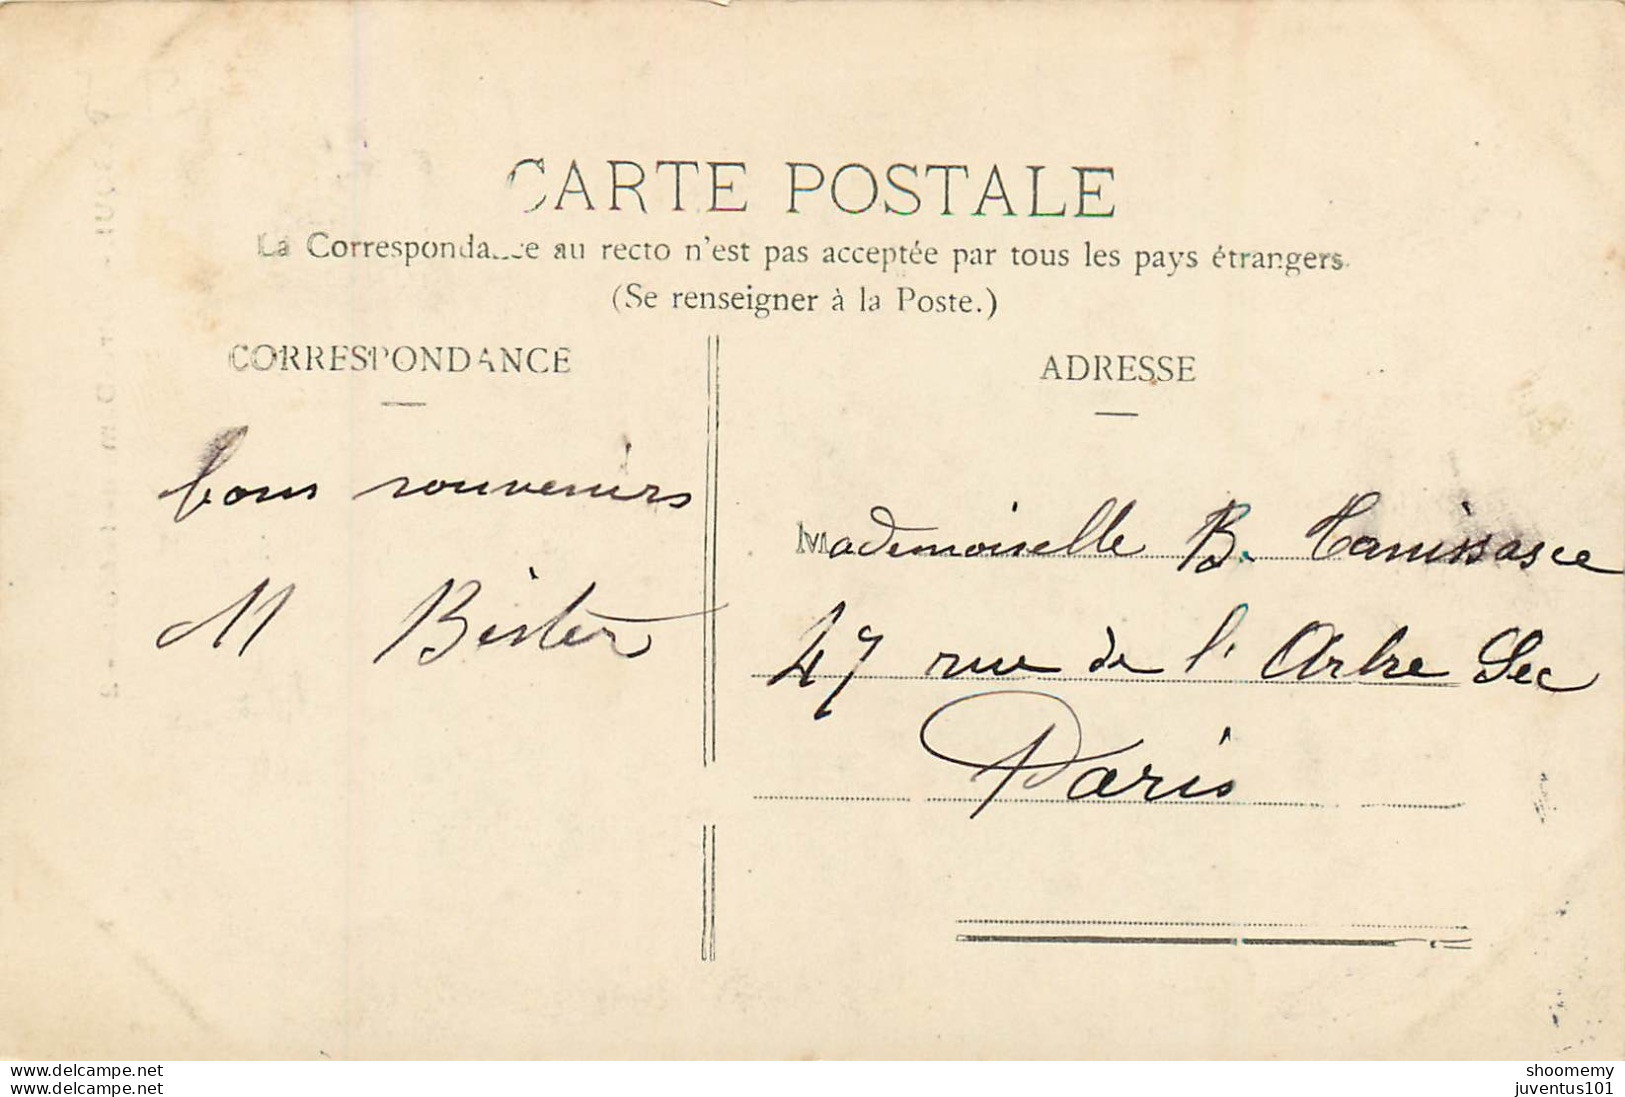 CARTE POSTALE
La Correspondance au recto n'est pas acceptée par tous les pays étrangers.
(Se renseigner à la Poste.)
CORRESPONDANCE
bons souvenirs
M Bister
ADRESSE
Mademoiselle B.
47 rue de l'Arbre Sec
Paris
www.delcampe.net
www.delcampe.net
shoomemy
juventus101